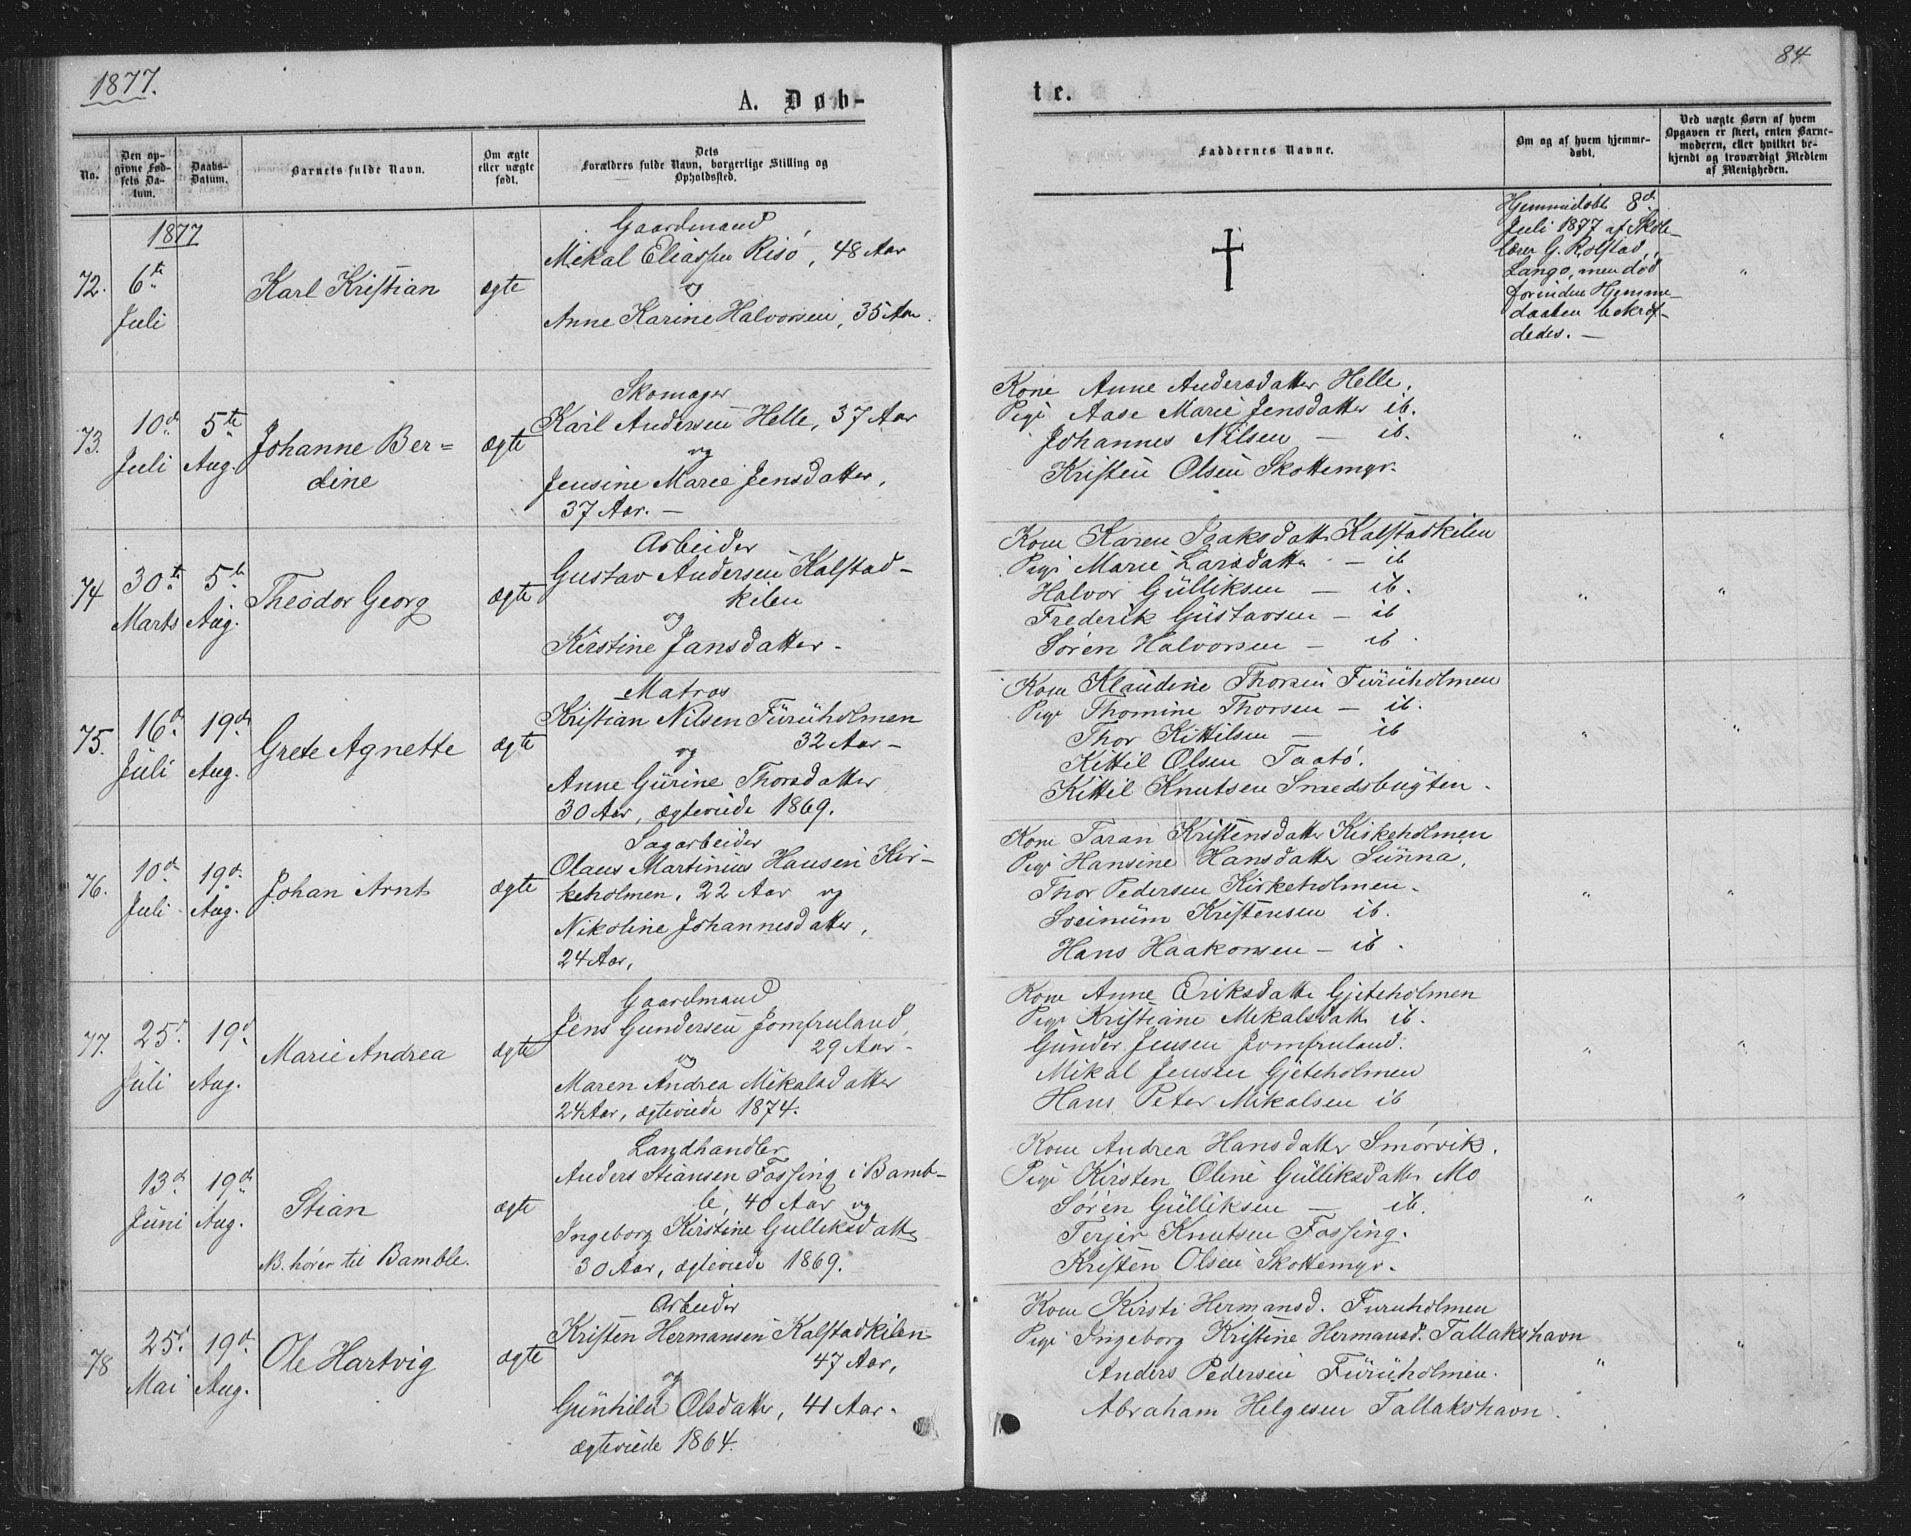 1877.
84
A. Døb-
te.
No.
Den opgivne Fødsels Datum.
Daabs-Datum.
Barnets fulde Navn.
Om ægte eller uægte født.
Dets Forældres fulde Navn, borgerlige Stilling og Opholdssted.
Faddernes Navne.
Om og af hvem hjemmedøbt.
Ved uægte Børn af hvem Opgaven er skeet, enten Barnemoderen, eller hvilket bekjendt og troværdigt Medlem af Menigheden.
1877
72.
6te
Juli
Karl Kristian
ægte
Gaardmand
Mikal Eliassen Risø, 48 Aar
og
Anne Karine Halvorsen, 35 Aar.
†
Hjemmedøbt 8d
Juli 1877 af Skole-
lærer G. Rolfstad,
Langø, men død
forinden Hjemme-
daaben bekræf-
tedes. —
"
73.
10d
Juli
5te
Aug.
Johanne Ber=
dine
ægte
Skomager
Karl Andersen Helle, 37 Aar
og
Jensine Marie Jensdatter,
37 Aar. —
Kone Anne Andersdatter Helle.
Pige Aase Marie Jensdatter ib.
Johannes Nilsen — ib.
Kristen Olsen Skottemyr.
" "
74
30te
Marts
5te
Aug.
Theodor Georg
ægte
Arbeider
Gustav Andersen Kalstad-
kilen
og
Kirstine Jansdatter.
Kone Karen Isaksdatt. Kalstadkilen
Pige Marie Larsdatt. — ib
Halvor Gulliksen — ib.
Frederik Gustavsen — ib
Søren Halvorsen — ib.
" "
75.
16d
Juli
19d
Aug.
Grete Agnette
ægte
Matros
Kristian Nilsen Furuholmen
32 Aar —
og
Anne Gurine Thorsdatter
30 Aar, ægteviede 1869.
Kone Klaudine Thorsen Furuholmen
Pige Thomine Thorsen — ib.
Thor Kittilsen — ib
Kittil Olsen Taatø.
Kittil Knutsen Smedsbugten.
" "
76.
10d
Juli
19d
Aug.
Johan Arnt
ægte
Sagarbeider
Olaus Martinius Hansen Kir-
keholmen, 22 Aar og
Nikoline Johannesdatter,
24 Aar,
Kone Taran Kristensdatter Kirkeholmen
Pige Hansine Hansdatter Sunna,
Thor Pedersen Kirkeholmen.
Sveinum Kristensen ib.
Hans Haakonsen — ib.
" "
77.
25d
Juli
19d
Aug.
Marie Andrea
ægte
Gaardmand
Jens Gundersen Jomfruland,
29 Aar —
og
Maren Andrea Mikalsdatter
24 Aar, ægteviede 1874.
Kone Anne Eriksdatt. Gjeteholmen
Pige Kristiane Mikalsdatt. ib.
Gunder Jensen Jomfruland.
Mikal Jensen Gjeteholmen
Hans Peter Mikalsen ib
" "
13d
Juni
19d
Aug.
Stian
NB. hører til Bamble.
ægte
Landhandler
Anders Stiansen Fossing i Bamb-
le, 40 Aar og
Ingeborg Kirstine Gulliksdatt.
30 Aar, ægteviede 1869.
Kone Andrea Hansdatter Smørvik.
Pige Kirsten Oline Gulliksdatt. Mo
Søren Gulliksen — ib.
Terjer Knutsen Fossing.
Kristen Olsen Skottemyr.
" "
78
25d
Mai
19d
Aug.
Ole Hartvig
ægte
Arbeider
Kristen Hermansen Kalstadkilen
47 Aar,
og
Gunhild Olsdatter, 41 Aar.
ægteviede 1864.
Kone Kirsti Hermansd. Furuholmen
Pige Ingeborg Kristine Hermansd. Tallakshavn
Anders Pedersen Furuholmen.
Abraham Helgesen Tallakshavn.
" "